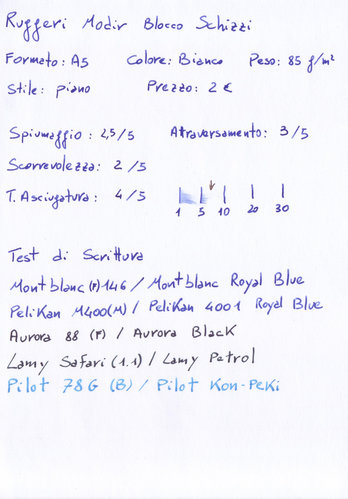 Ruggeri Modir Blocco Schizzi
Formato: A5 Colore: Bianco Peso: 85 g/m²
Stile: piano Prezzo: 2 €
Spiumaggio: 2,5/5 Attraversamento: 3/5
Scorrevolezza: 2/5
T. Asciugatura: 4/5
1 5 10 20 30
Test di Scrittura
Montblanc (F) 146 / Montblanc Royal Blue
Pelikan M400 (M) / Pelikan 4001 Royal Blue
Aurora 88 (F) / Aurora Black
Lamy Safari (1.1) / Lamy Petrol
Pilot 78G (B) / Pilot Kon-Peki